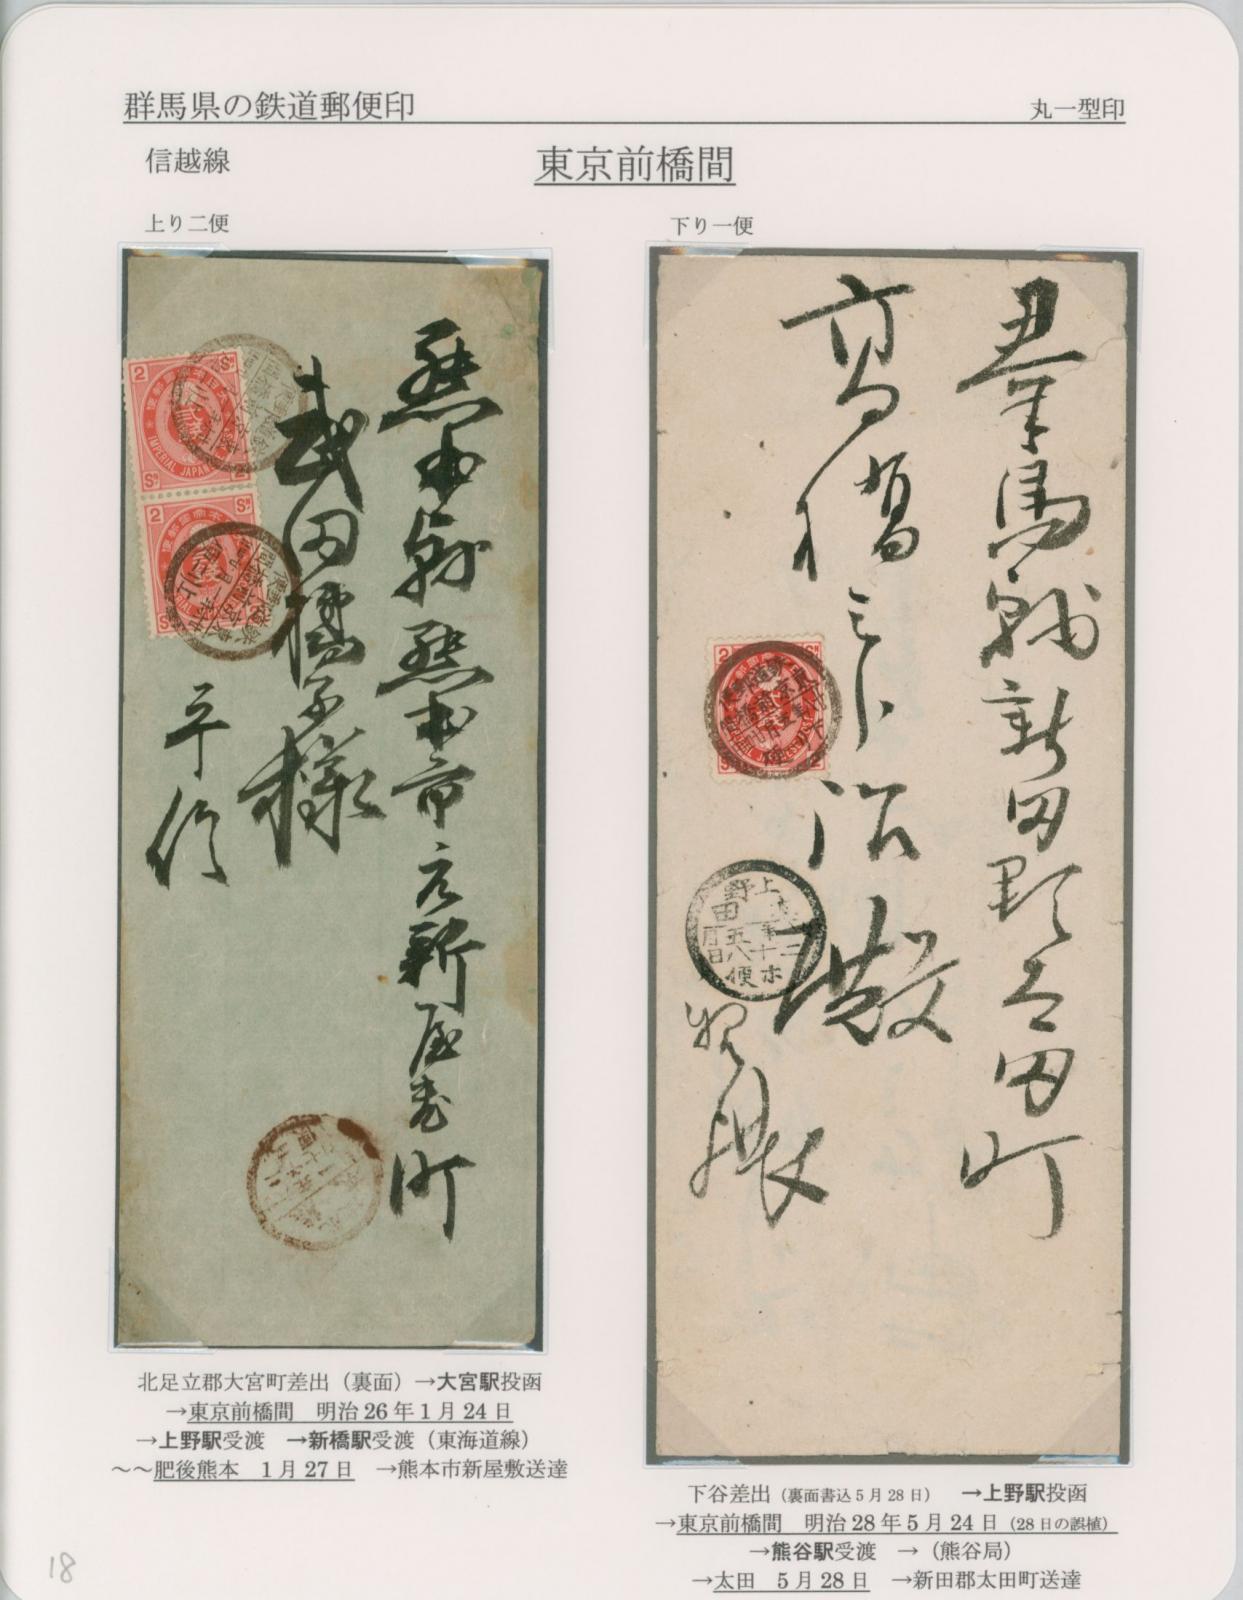 群馬県の鉄道郵便印
丸一型印
信越線
東京前橋間
上り二便
下り一便
熊本縣熊本市元新屋敷町
武田
様
平信
2 SN
IMPERIAL JAPAN
2 SN
群馬縣新田郡太田町
髙橋
殿
上野
太田
北足立郡大宮町差出（裏面）→大宮駅投函
→東京前橋間　明治26年1月24日
→上野駅受渡　→新橋駅受渡（東海道線）
～～肥後熊本　1月27日　→熊本市新屋敷送達
下谷差出（裏面書込5月28日）　→上野駅投函
→東京前橋間　明治28年5月24日（28日の誤植）
→熊谷駅受渡　→（熊谷局）
→太田　5月28日　→新田郡太田町送達
18